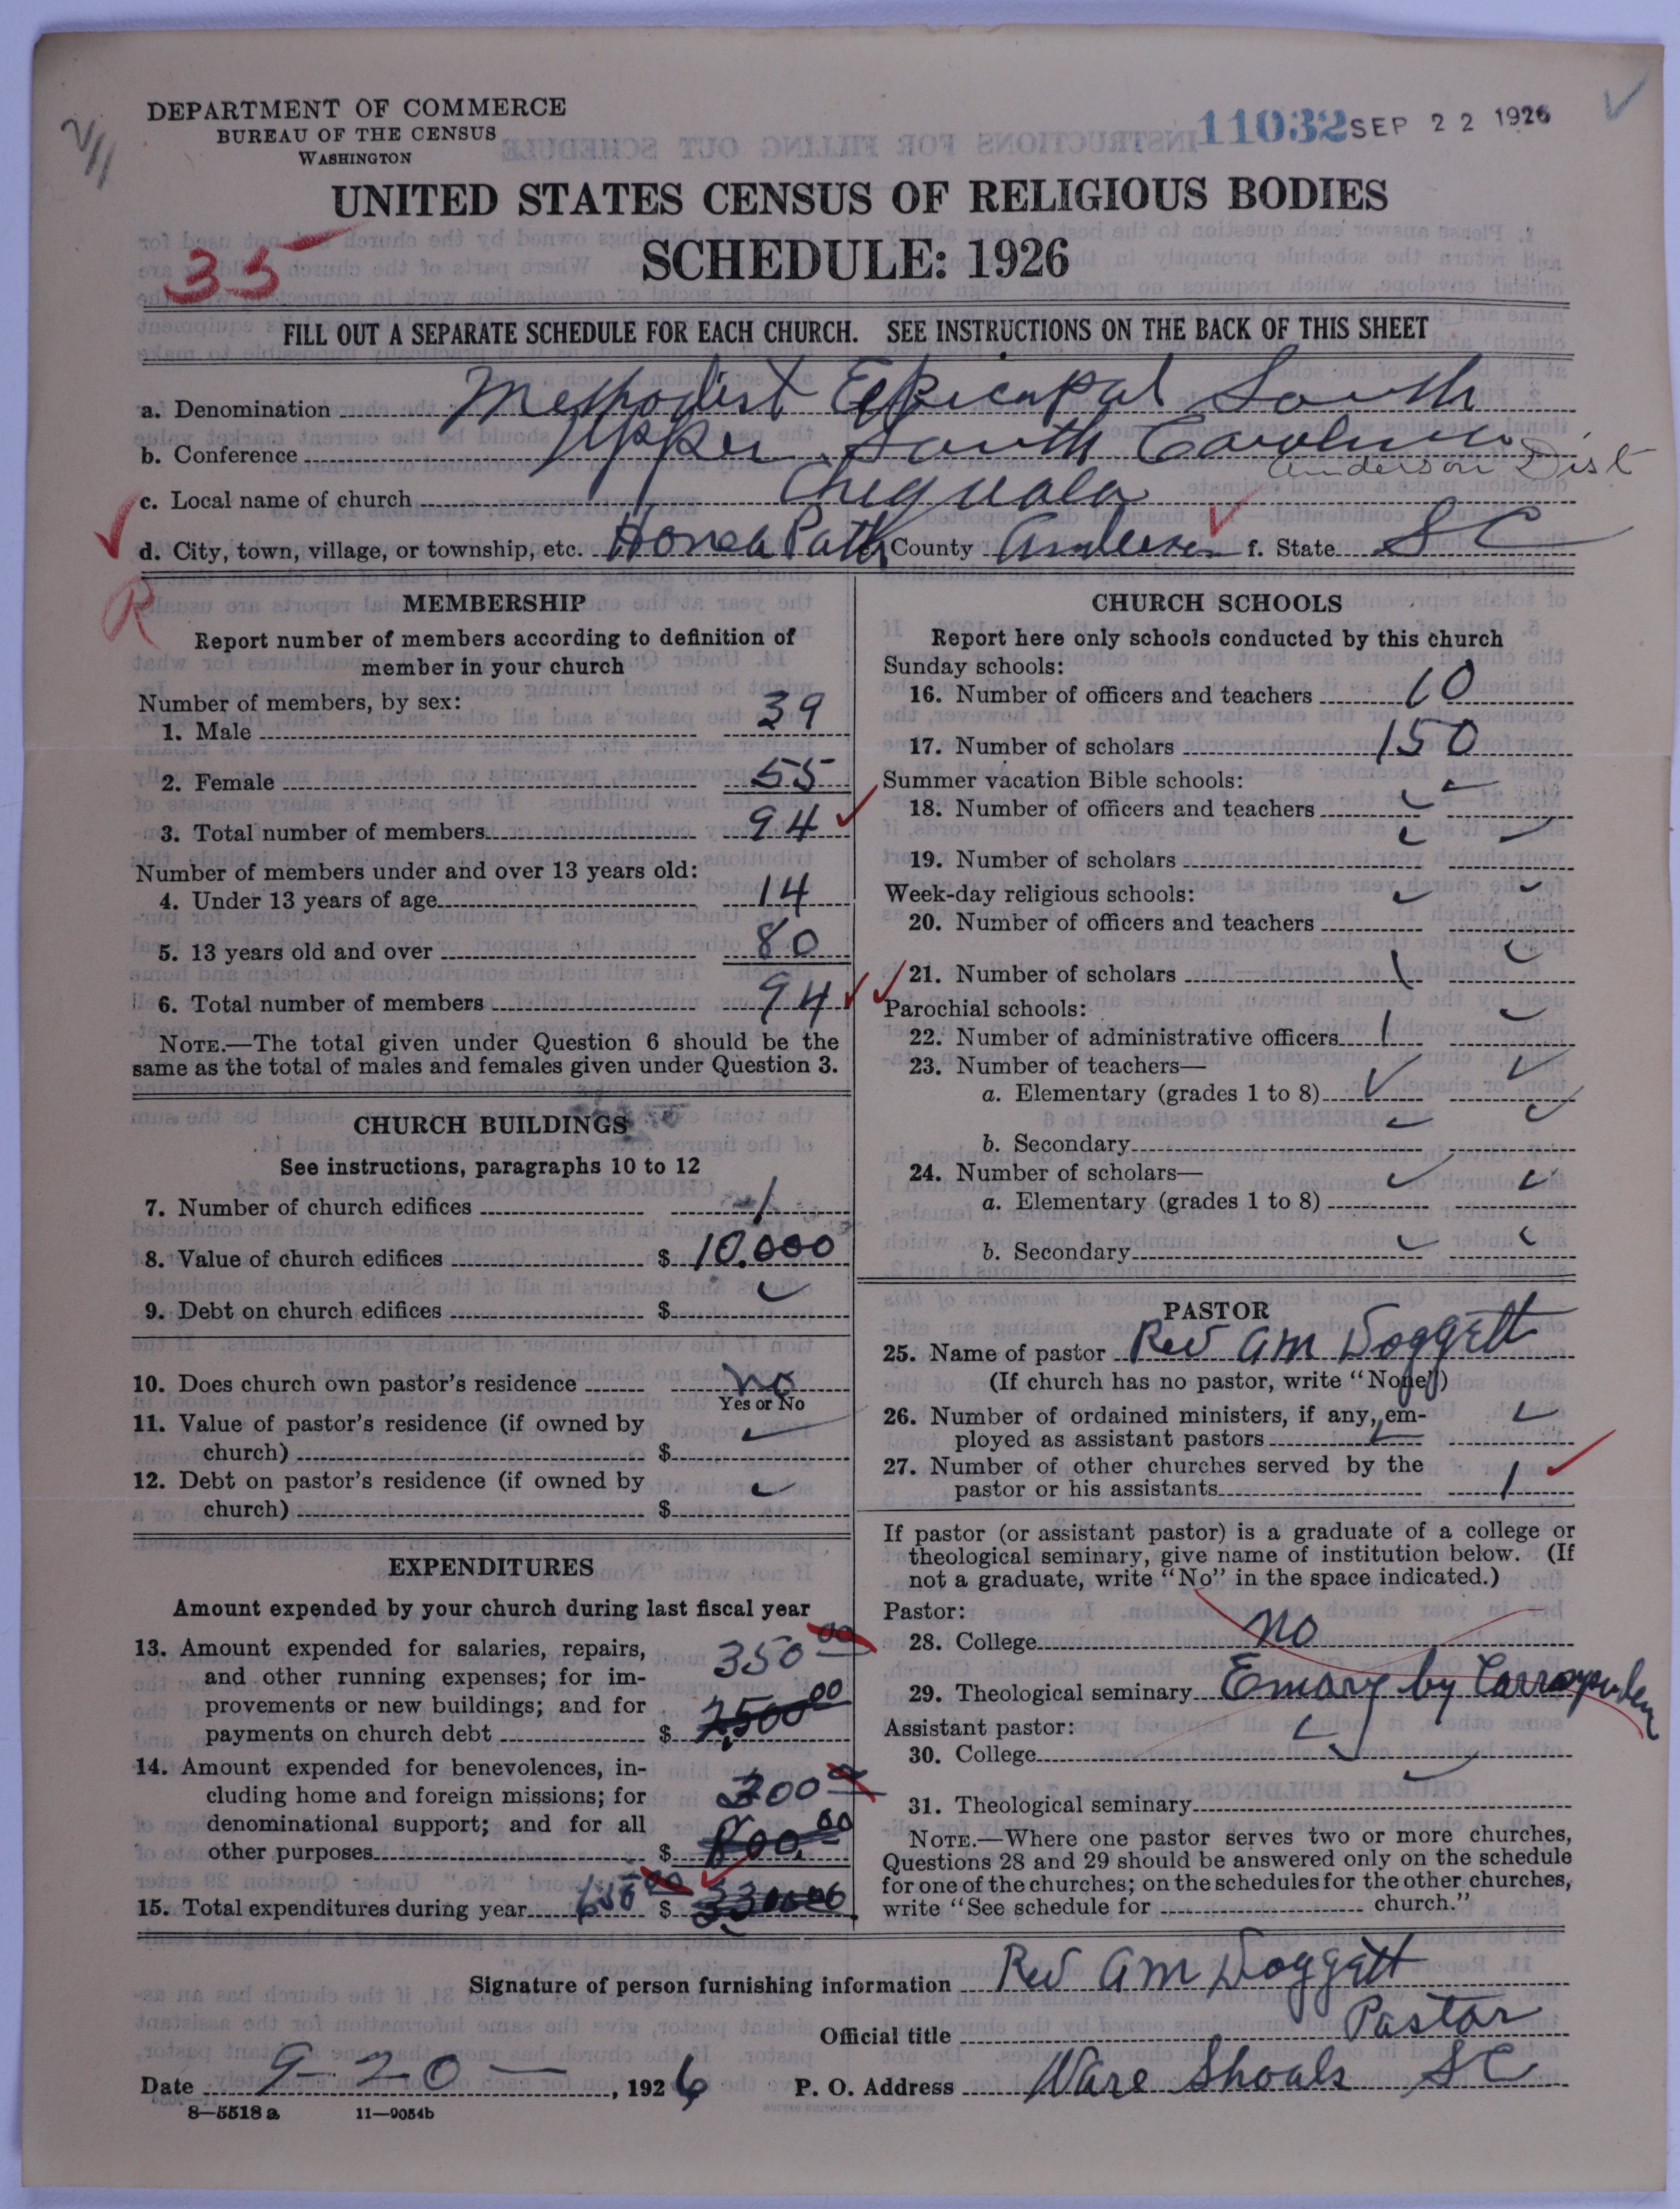 DEPARTMENT OF COMMERCE
BUREAU OF THE CENSUS
WASHINGTON
11032 SEP 22 1926
UNITED STATES CENSUS OF RELIGIOUS BODIES
SCHEDULE: 1926
35
FILL OUT A SEPARATE SCHEDULE FOR EACH CHURCH. SEE INSTRUCTIONS ON THE BACK OF THIS SHEET
a. Denomination Methodist Episcopal South
b. Conference Upper South Carolina
Anderson Dist
c. Local name of church Chiquola
d. City, town, village, or township, etc. Honea Path e. County Anderson f. State S C
R
MEMBERSHIP
Report number of members according to definition of
member in your church
Number of members, by sex:
1. Male 39
2. Female 55
3. Total number of members 94
Number of members under and over 13 years old:
4. Under 13 years of age 14
5. 13 years old and over 80
6. Total number of members 94
NOTE.—The total given under Question 6 should be the
same as the total of males and females given under Question 3.
CHURCH BUILDINGS
See instructions, paragraphs 10 to 12
7. Number of church edifices 1
8. Value of church edifices $ 10.000
9. Debt on church edifices $
10. Does church own pastor's residence no
Yes or No
11. Value of pastor's residence (if owned by
church) $
12. Debt on pastor's residence (if owned by
church) $
EXPENDITURES
Amount expended by your church during last fiscal year
13. Amount expended for salaries, repairs,
and other running expenses; for im-
provements or new buildings; and for
payments on church debt $ 350 00
2500 00
14. Amount expended for benevolences, in-
cluding home and foreign missions; for
denominational support; and for all
other purposes $ 300
800. 00
15. Total expenditures during year 650 00 $
CHURCH SCHOOLS
Report here only schools conducted by this church
Sunday schools:
16. Number of officers and teachers 10
17. Number of scholars 150
Summer vacation Bible schools:
18. Number of officers and teachers
19. Number of scholars
Week-day religious schools:
20. Number of officers and teachers
21. Number of scholars
Parochial schools:
22. Number of administrative officers
23. Number of teachers—
a. Elementary (grades 1 to 8)
b. Secondary
24. Number of scholars—
a. Elementary (grades 1 to 8)
b. Secondary
PASTOR
25. Name of pastor Rev A M Doggett
(If church has no pastor, write "None")
26. Number of ordained ministers, if any, em-
ployed as assistant pastors
27. Number of other churches served by the
pastor or his assistants 1
If pastor (or assistant pastor) is a graduate of a college or
theological seminary, give name of institution below. (If
not a graduate, write "No" in the space indicated.)
Pastor:
28. College no
29. Theological seminary Emory by
Assistant pastor:
30. College
31. Theological seminary
NOTE.—Where one pastor serves two or more churches,
Questions 28 and 29 should be answered only on the schedule
for one of the churches; on the schedules for the other churches,
write "See schedule for church."
Signature of person furnishing information Rev A M Doggett
Official title Pastor
Date 9-20—, 1926 P. O. Address Ware Shoals S C
8—5518 a 11—9054b